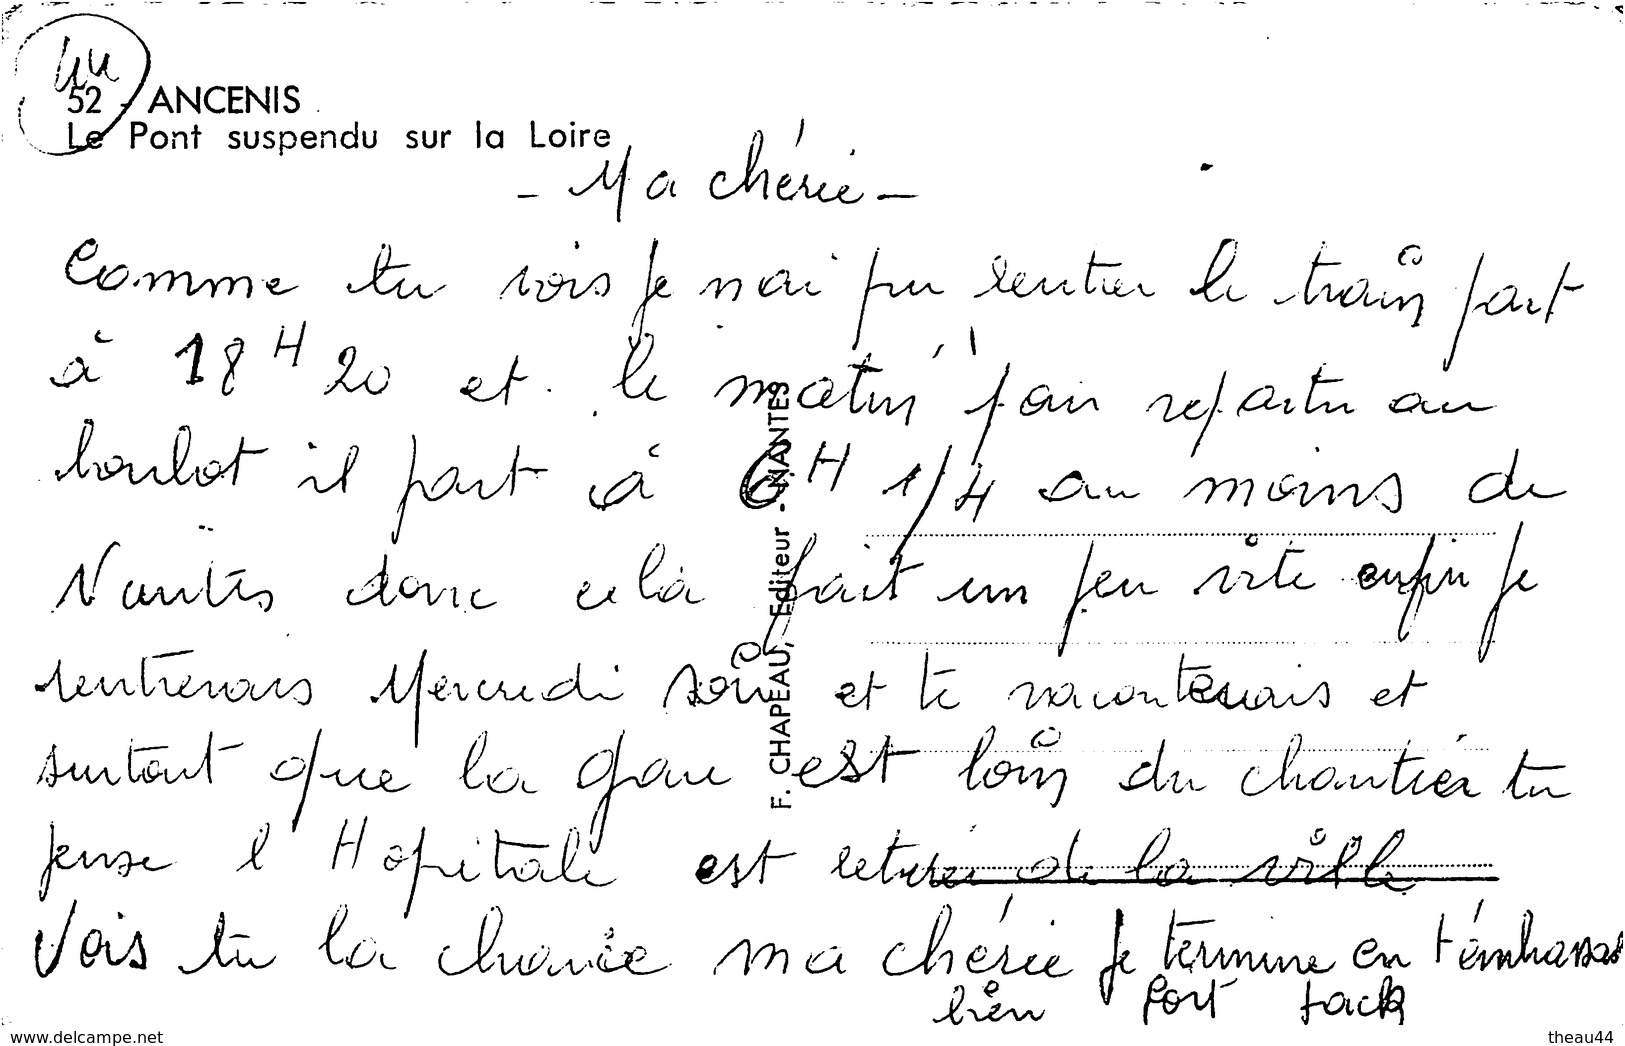 44
52 - ANCENIS
Le Pont suspendu sur la Loire
- Ma chérie -
Comme tu vois je n'ai pu rentrer le train part
à 18 H 20 et le matin pour repartir au
boulot il part à 6 H 1/4 au moins de
Nantes donc cela fait un peu vite enfin je
rentrerais Mercredi soir et te raconterais et
surtout que la gare est loin du chantier tu
pense l'Hopitale est retirée de la ville
Vois tu la chance ma chérie je termine en t'émbrassas
bien fort Jack
F. CHAPEAU, Editeur - NANTES
www.delcampe.net
theau44